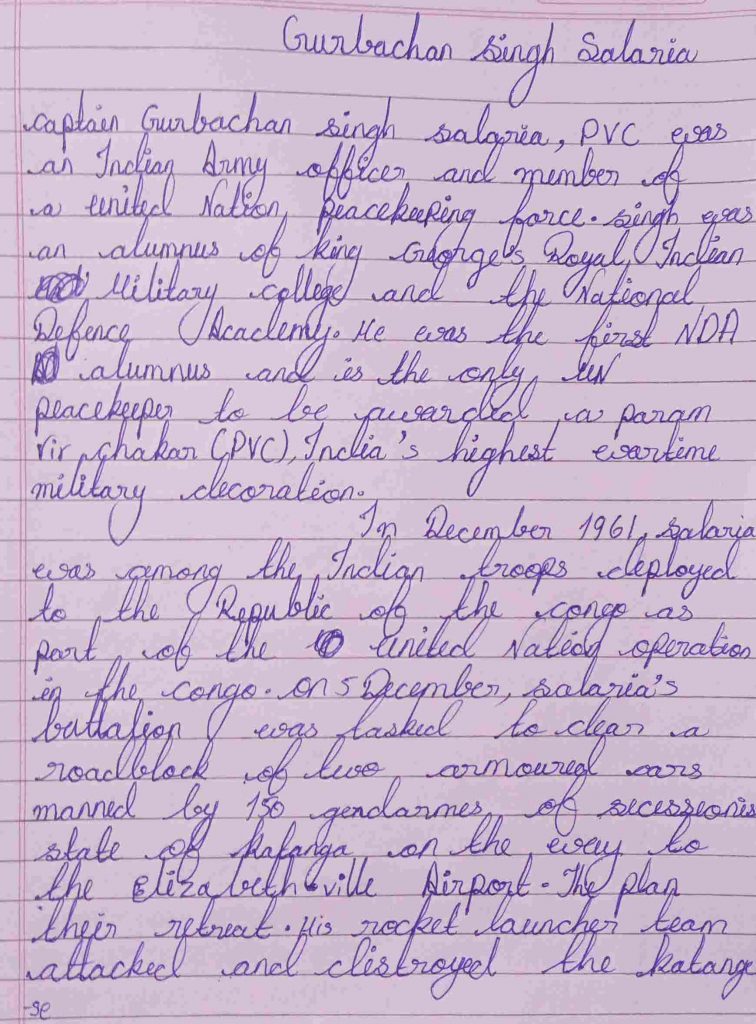 Gurbachan Singh Salaria
captain Gurbachan singh salaria, PVC was
an Indian Army officer and member of
a united Nation peacekeeping force. singh was
an alumnus of king George's Royal Indian
Military college and the National
Defence Academy. He was the first NDA
alumnus and is the only UN
peacekeeper to be awarded a param
vir chakar (PVC), India's highest wartime
military decoration.
In December 1961, salaria
was among the Indian troops deployed
to the Republic of the congo as
part of the united Nation operation
in the congo. on 5 December, salaria's
battalion was tasked to clear a
roadblock of two armoured cars
manned by 150 gendarmes of secessionis
state of katanga on the way to
the Elizabethville Airport. The plan
their retreat. His rocket launcher team
attacked and distroyed the katange
-se